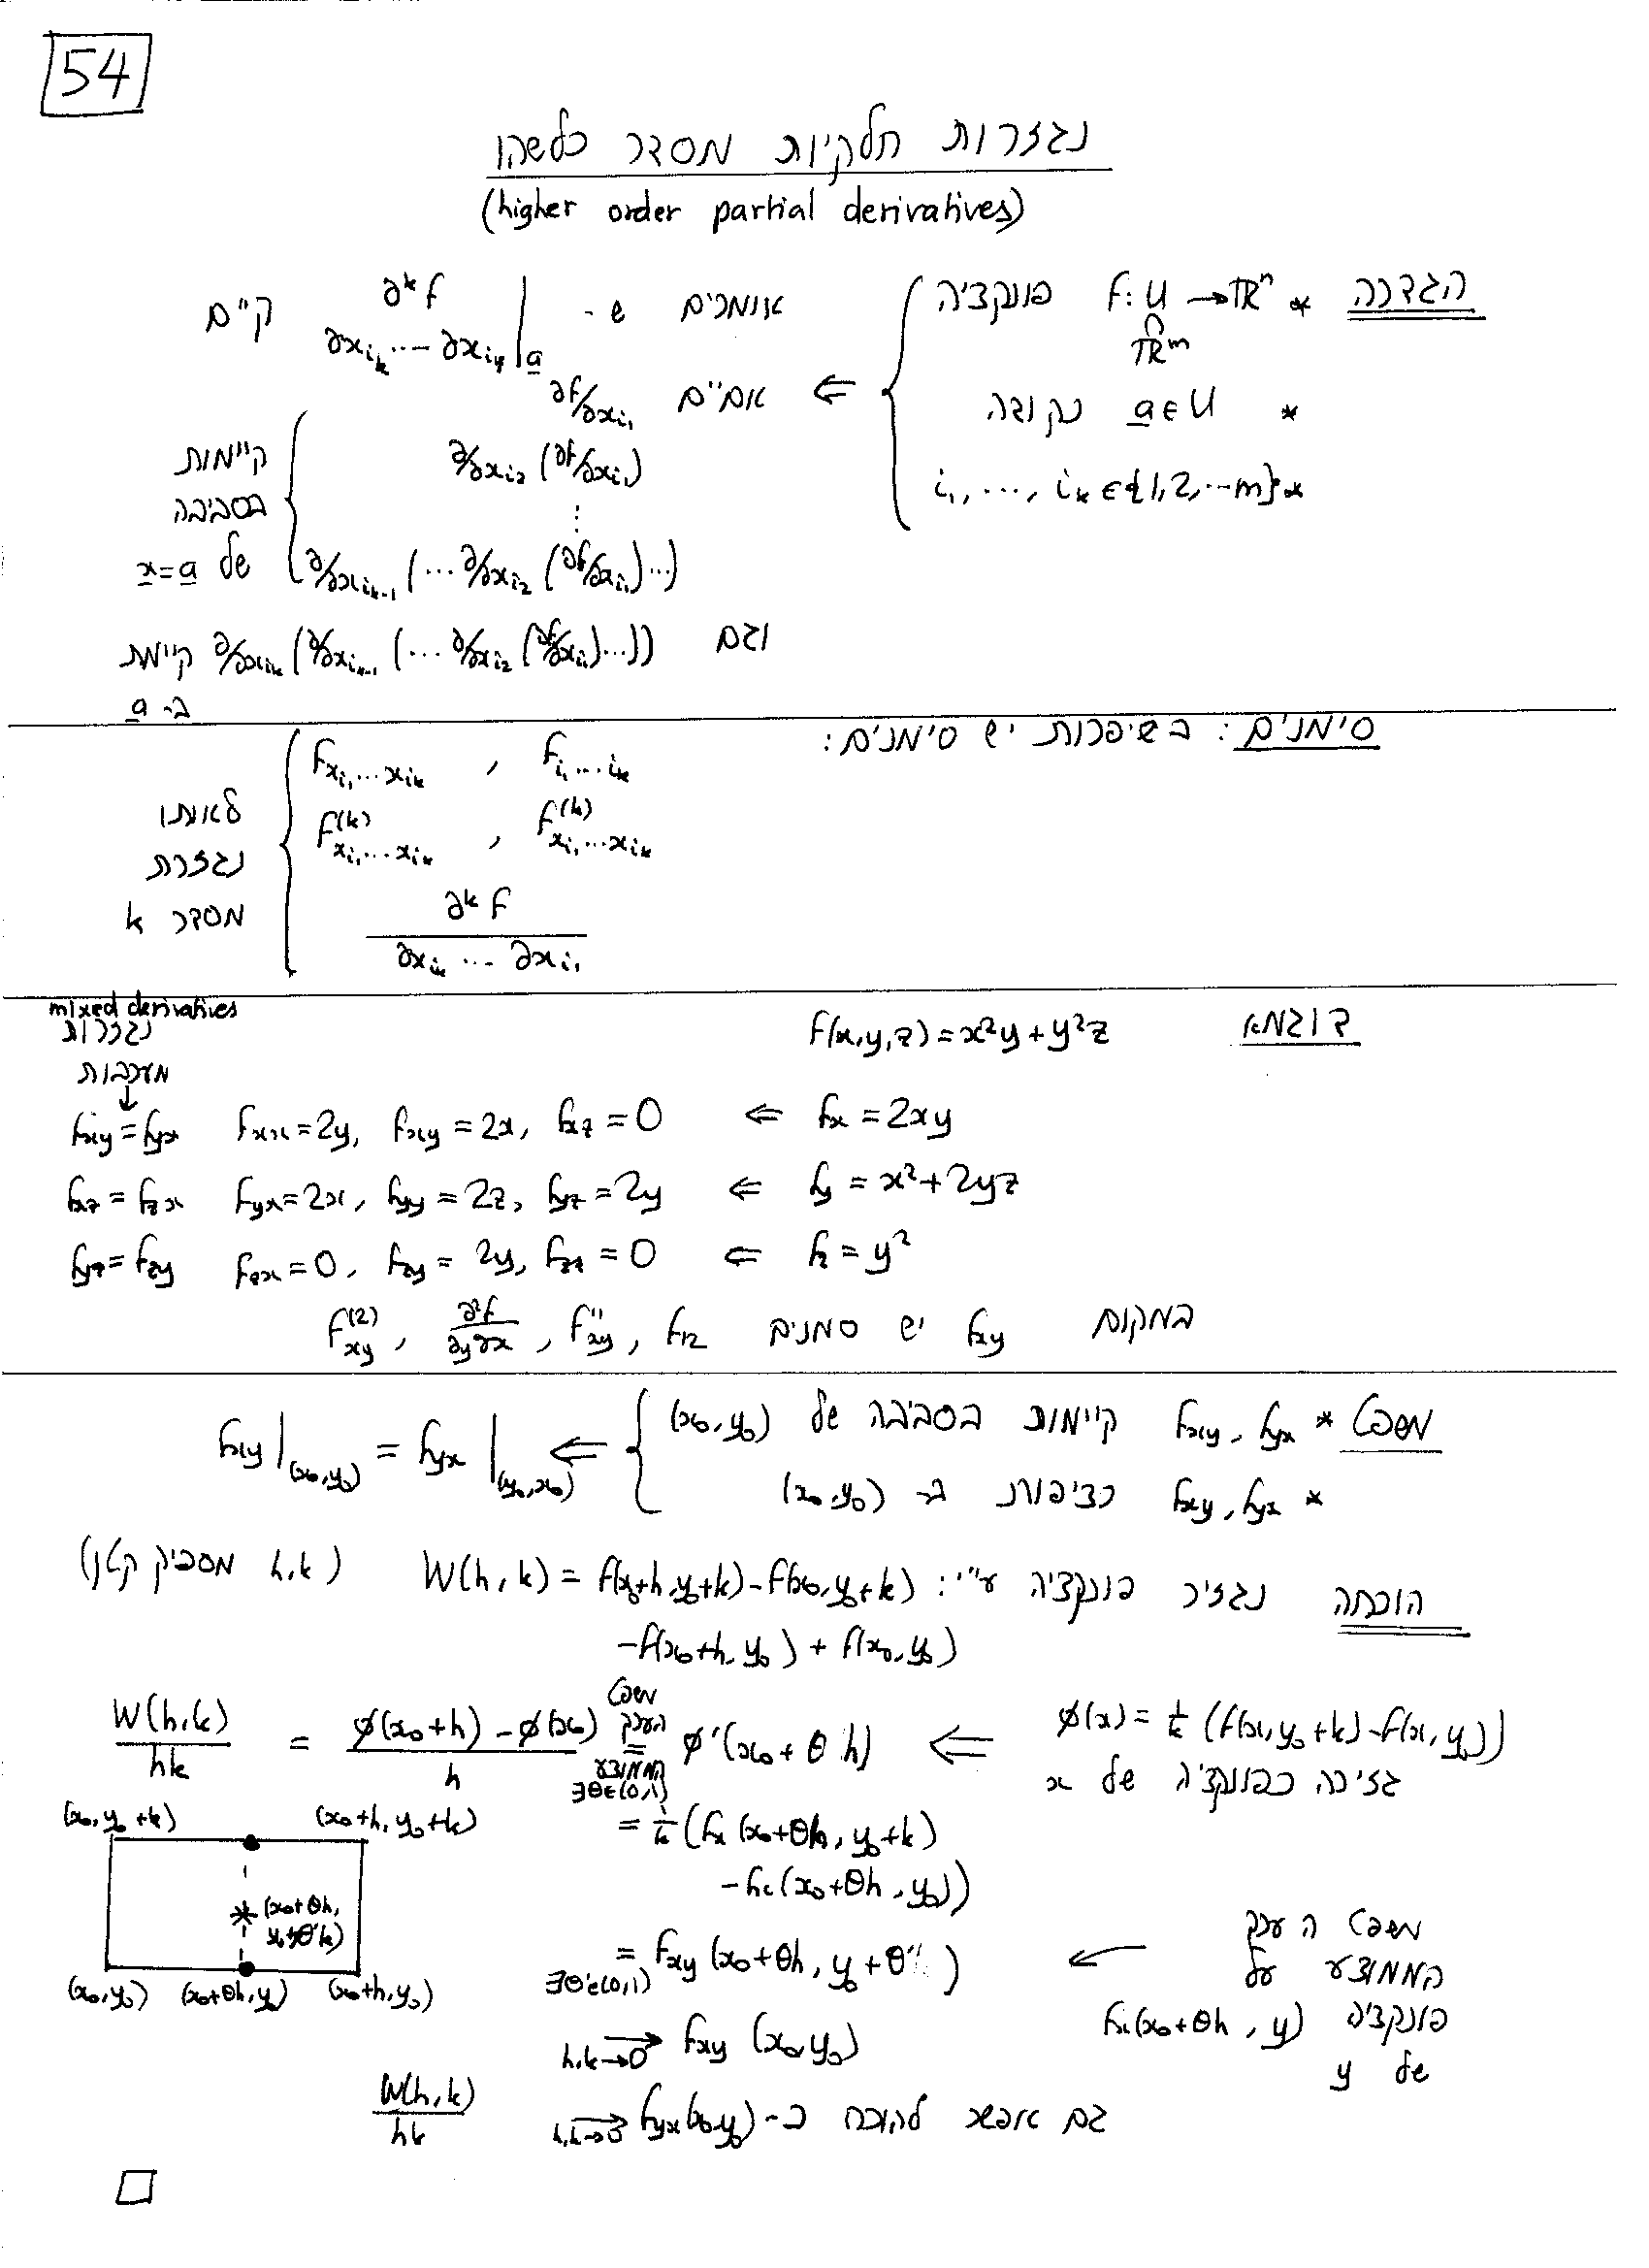 54
נגזרות חלקיות מסדר כלשהו
(higher order partial derivatives)
הגדרה * f: U → ℝⁿ פונקציה
∩
ℝᵐ
* a ∈ U נקודה
* i₁, ..., iₖ ∈ {1, 2, ... m}
⇐ אומרים ש- ∂ᵏf / ∂x_{iₖ} ... ∂x_{i₁} |_a קיים
אם"ם ∂f/∂x_{i₁}
∂/∂x_{i₂} (∂f/∂x_{i₁})
⋮
∂/∂x_{iₖ₋₁} (... ∂/∂x_{i₂} (∂f/∂x_{i₁}) ...)
קיימות
בסביבה
של x = a
וגם ∂/∂x_{iₖ} (∂/∂x_{iₖ₋₁} (... ∂/∂x_{i₂} (∂f/∂x_{i₁}) ...)) קיימת
ב- a
סימנים: בשיפרות יש סימנים:
f_{x_{i₁} ... x_{iₖ}} , f_{i₁ ... iₖ}
f^{(k)}_{x_{i₁} ... x_{iₖ}} , f^{(k)}_{x_{i₁} ... x_{iₖ}}
∂ᵏf / ∂x_{iₖ} ... ∂x_{i₁}
לאותו
נגזרת
מסדר k
דוגמא f(x, y, z) = x²y + y²z
mixed derivatives
נגזרות
מערבות
↓
f_x = 2xy ⇐ f_xx = 2y, f_xy = 2x, f_xz = 0 f_xy = f_yx
f_y = x² + 2yz ⇐ f_yx = 2x, f_yy = 2z, f_yz = 2y f_xz = f_zx
f_z = y² ⇐ f_zx = 0, f_zy = 2y, f_zz = 0 f_yz = f_zy
במקום f_xy יש סמנים f₁₂ , f''_xy , ∂²f/∂y∂x , f^{(2)}_xy
משפט * f_xy, f_yx קיימות בסביבה של (x₀, y₀)
* f_xy, f_yx רציפות ב- (x₀, y₀)
⇐ f_xy |_(x₀, y₀) = f_yx |_(y₀, x₀)
הוכחה נגזיר פונקציה ע"י: W(h, k) = f(x₀+h, y₀+k) - f(x₀, y₀+k) (h, k מספיק קטן)
- f(x₀+h, y₀) + f(x₀, y₀)
φ(x) = 1/k (f(x, y₀+k) - f(x, y₀))
גזירה כפונקציה של x
⇐ W(h, k)/hk = (φ(x₀+h) - φ(x₀))/h = φ'(x₀ + θh)
משפט
הערך
הממוצע
∃θ∈(0,1)
= 1/k (f_x (x₀+θh, y₀+k)
- f_x (x₀+θh, y₀))
= f_xy (x₀+θh, y₀+θ' )
∃θ'∈(0,1)
משפט הערך
הממוצע על
פונקציה f_x(x₀+θh, y)
של y
(x₀, y₀+k) (x₀+h, y₀+k)
(x₀+θh,
y₀+θ'k)
(x₀, y₀) (x₀+θh, y₀) (x₀+h, y₀)
→ f_xy (x₀, y₀)
h,k→0
גם אפשר להוכח כ- W(h, k)/hk → f_yx(x₀, y₀)
h,k→0
□